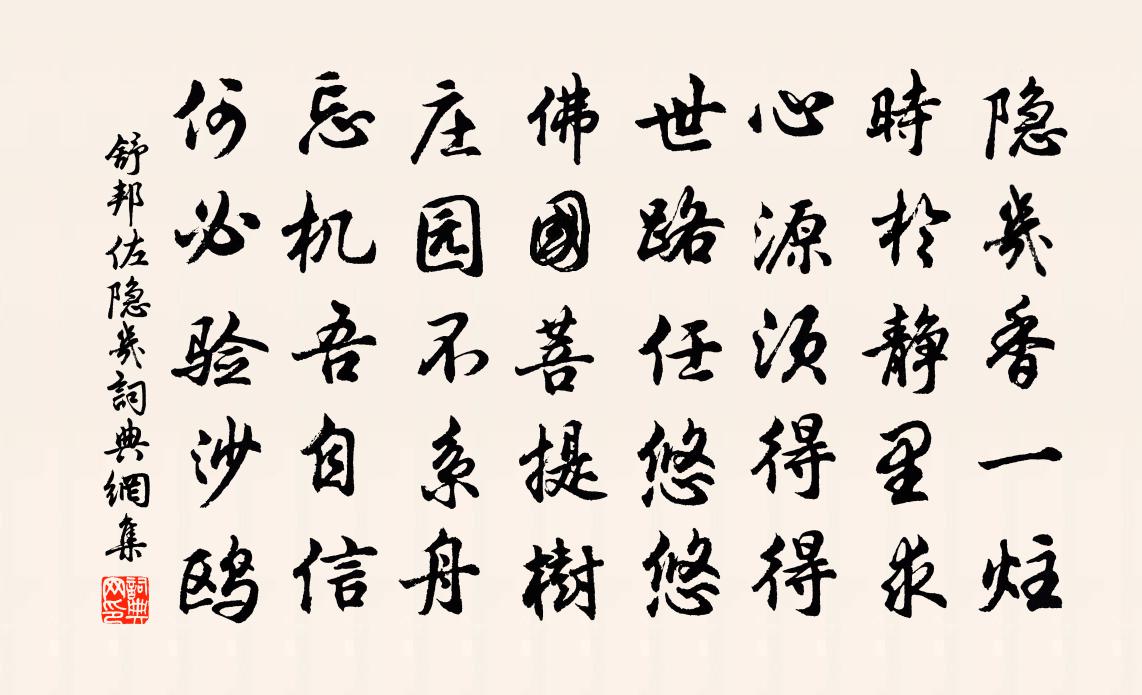 隐几香一炷
時於静里求
心源须得得
世路任悠悠
佛國菩提樹
庄园不系舟
忘机吾自信
何必验沙鸥
舒邦佐隐几詞典網集
詞典网印